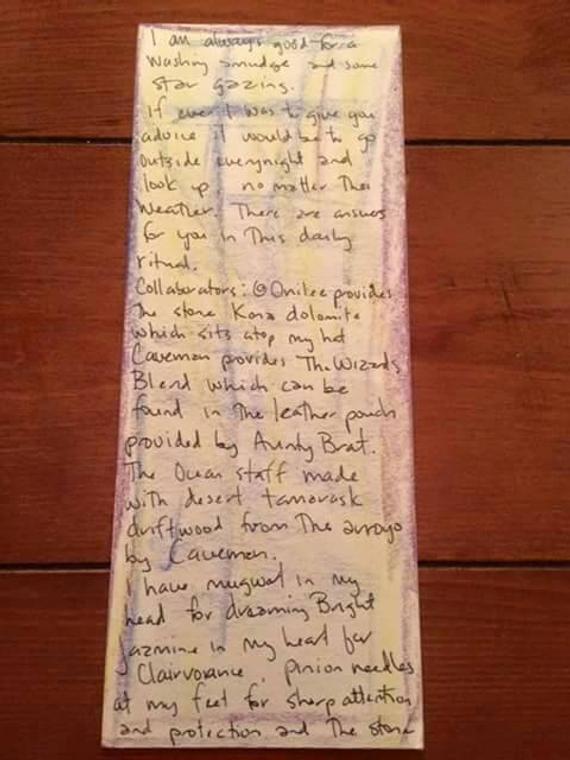 I am always good for a
washing smudge and some
star gazing.
If ever I was to give you
advice it would be to go
outside everynight and
look up, no matter The
weather. There are answers
for you in This daily
ritual.
Collaborators: @Onilee provides
The stone Kona dolomite
which sits atop my hat
Caveman provides The Wizards
Blend which can be
found in The leather pouch
provided by Aunty Brat.
The Ocean staff made
with desert tamarask
driftwood from The arroyo
by Caveman.
I have mugwort in my
head for dreaming Bright
Jazmine in my heart for
Clairvoyance, pinion needles
at my feet for sharp attention
and protection and The stone